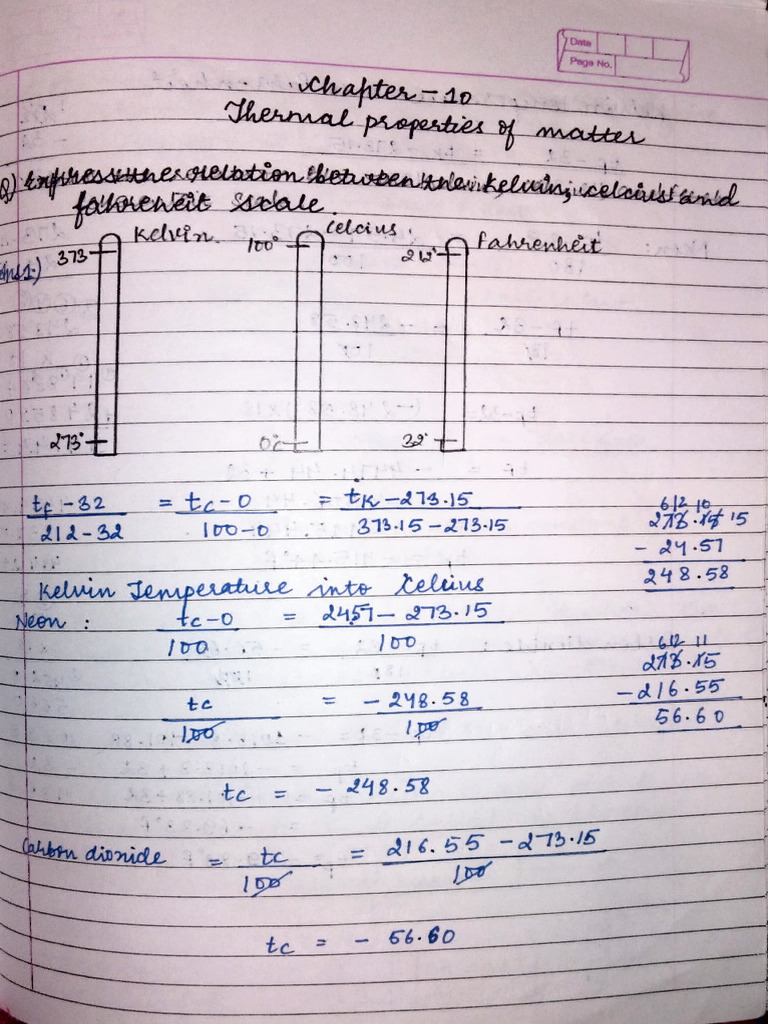 Date
Page No.
Chapter - 10
Thermal properties of matter
Q) Express the relation between the kelvin, celcius and
fahrenheit scale.
Kelvin. Celcius. Fahrenheit
373 100° 212°
Ans1.)
273° 0°c 32°
tf - 32 / 212 - 32 = tc - 0 / 100 - 0 = tk - 273.15 / 373.15 - 273.15
6 12 10
273.15 15
- 24.57
248.58
Kelvin Temperature into Celcius
Neon : tc - 0 / 100 = 2457 - 273.15 / 100
6 12 11
273.15
- 216.55
56.60
tc / 100 = - 248.58 / 100
tc = - 248.58
Carbon dionide = tc / 100 = 216.55 - 273.15 / 100
tc = - 56.60